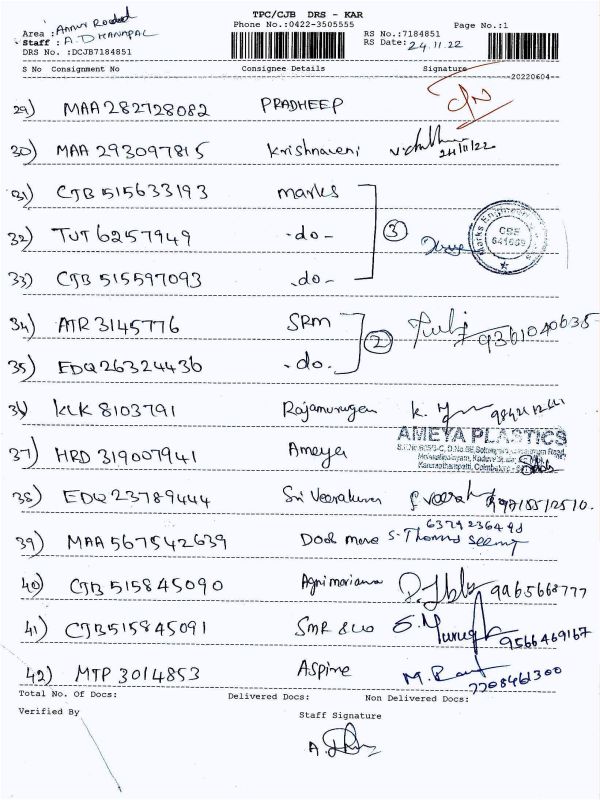 TPC/CJB DRS - KAR
Area : Annur Roaded
Phone No.:0422-3505555
Page No.:1
Staff : A. DHANAPAL
RS No.:7184851
DRS No. :DCJB7184851
RS Date: 24.11.22
S No Consignment No Consignee Details Signature
20220604
29) MAA 282728082 PRADHEEP
30) MAA 293097815 Krishnaveni 24/11/22
31) CJB 515633193 marks
32) TUT 6257949 -do- 3
33) CJB 515597093 -do-
Marks Engineering CBE 641659
34) ATR 3145776 SRM 9361040635
35) EDQ 26324436 -do- 2
36) KLK 8103791 Rajamurugan K.
37) HRD 319007941 Ameya
AMEYA PLASTICS
38) EDQ 23789444 Sri Veerakumar
39) MAA 567542639 Dock more S. Thomas
40) CJB 515845090 Agnimariamma 9965668777
41) CJB515845091 SMR & co S. Murugh 9566469167
42) MTP 3014853 Aspire M. 7708461300
Total No. Of Docs: Delivered Docs: Non Delivered Docs:
Verified By
Staff Signature